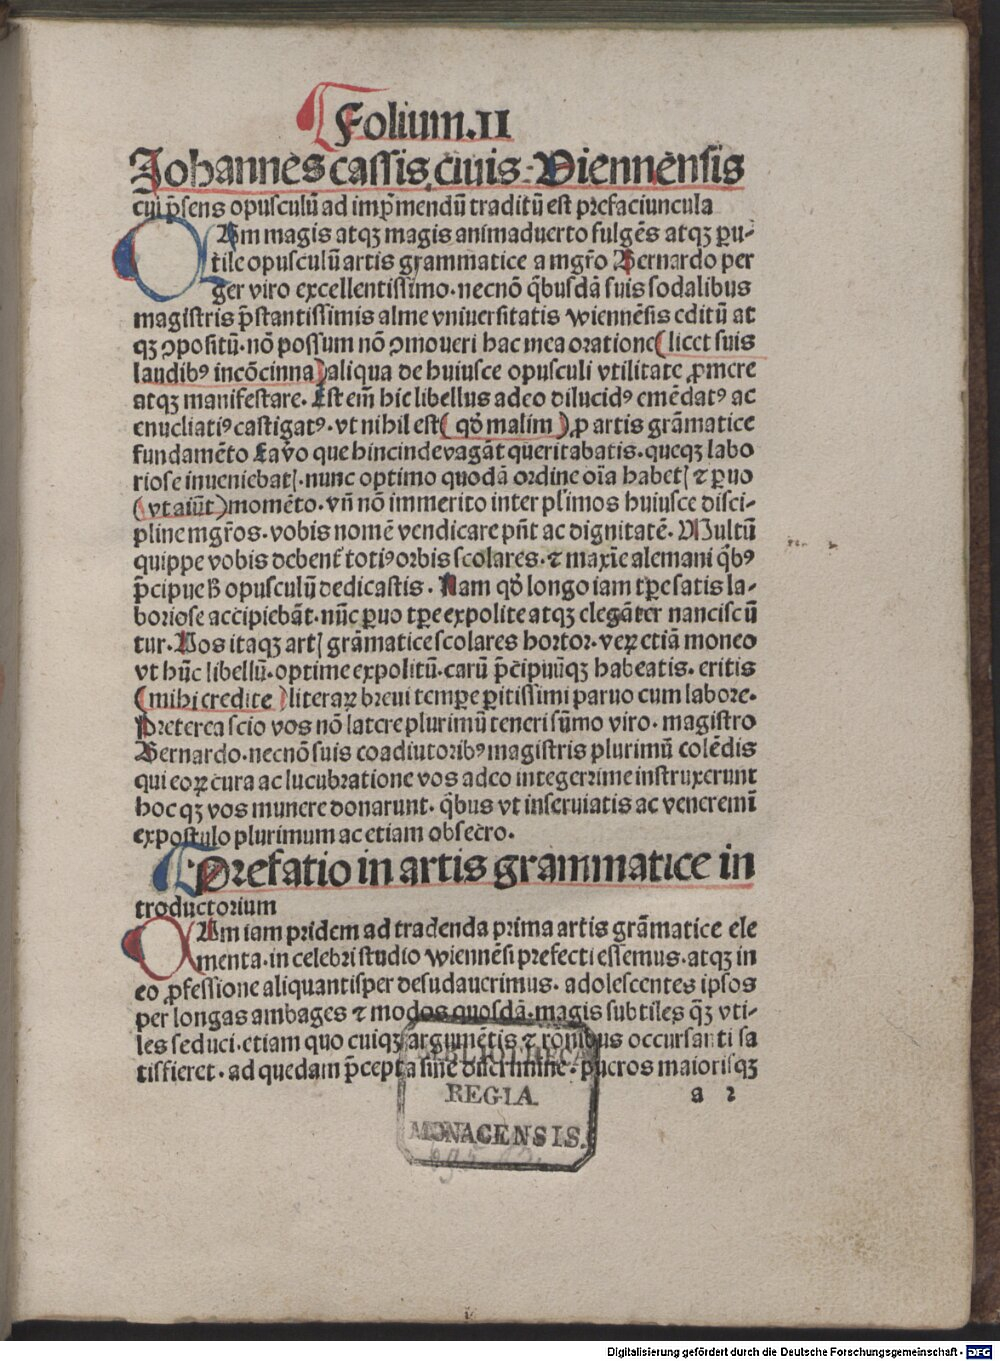 Folium.II
Johannes cassis civis Viennensis
cui p̄sens opusculū ad imp̄mendū traditū est prefaciuncula
QAm magis atqꝫ magis animaduerto fulgēs atqꝫ ꝑu-
tile opusculū artis grammatice a mgr̄o Bernardo per
ger viro excellentissimo·necnō q̄busdā suis sodalibus
magistris p̄stantissimis alme vniuersitatis wiennēsis editū at
qꝫ ꝯpositū·nō possum nō ꝯmoueri hac mea oratione(licet suis
laudibꝰ incōcinna)aliqua de huiusce opusculi vtilitate ꝓmere
atqꝫ manifestare. Est em̄ hic libellus adeo dilucidꝰ emēdatꝰ ac
enucliatiꝰ castigatꝰ·vt nihil est( qd̄ malim )ꝓ artis grāmatice
fundamēto Ea v̄o que hincinde vagāt queritabatis·queqꝫ labo
riose inueniebatꝭ·nunc optimo quodā ordine oīa habetꝭ ⁊ ꝑuo
(vt aiūt)momēto·vn̄ nō immerito inter pl̄imos huiusce disci-
pline mgr̄os·vobis nomē vendicare pn̄t ac dignitatē. Multū
quippe vobis debent̄ totiꝰ orbis scolares·⁊ maxīe alemani q̄bꝰ
p̄cipue hͦ opusculū dedicastis. Nam qd̄ longo iam tꝑe satis la-
boriose accipiebāt·nūc ꝑuo tꝑe expolite atqꝫ elegāter nanciscū
tur·Vos itaqꝫ artꝭ grāmatice scolares hortor·veꝝ etiā moneo
vt hūc libellū·optime expolitū·carū p̄cipuūqꝫ habeatis·eritis
(mihi credite )literaꝝ breui tempe ꝑitissimi paruo cum labore.
Preterea scio vos nō latere plurimū teneri sūmo viro·magistro
Bernardo·necnō suis coadiutoribꝰ magistris plurimū colēdis
qui eoꝝ cura ac lucubratione vos adeo integerrime instruxerunt
hoc qꝫ vos munere donarunt·q̄bus vt inseruiatis ac veneremī
expostulo plurimum ac etiam obsecro.
Prefatio in artis grammatice in
troductorium
CUm iam pridem ad tradenda prima artis grāmatice ele
menta·in celebri studio wiennēsi prefecti essemus·atqꝫ in
eo ꝓfessione aliquantisper desudauerimus·adolescentes ipsos
per longas ambages ⁊ modos quosdā·magis subtiles q̄ꝫ vti-
les seduci·etiam quo cuiqꝫ argumētis ⁊ ronibus occursanti sa
tisfieret·ad quedam p̄cepta sine discrimine·pueros maiorisqꝫ
a 2
BIBLIOTHECA
REGIA
MONACENSIS.
Digitalisierung gefördert durch die Deutsche Forschungsgemeinschaft - DFG